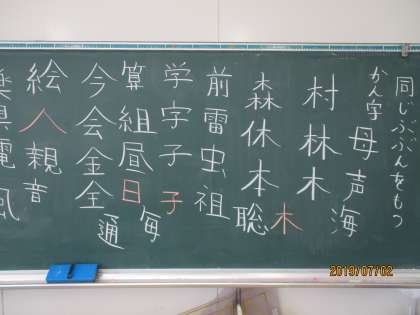 同じぶぶんをもつ
かん字
母声海
村林木
森休本
木
聡
前雷虫祖
学字子
子
毎
算組昼
日
今会金全
通
絵
人
親音
楽具電風
2019/07/02